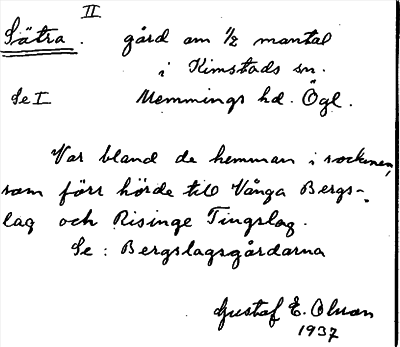 II
Sätra. gård om 1/2 mantal
i Kimstads sn.
Se I Memmings hd. Ögl.
Var bland de hemman i socknen,
som förr hörde till Vånga Bergs-
lag och Risinge Tingslag.
Se: Bergslagsgårdarna
Gustaf E. Olson
1937